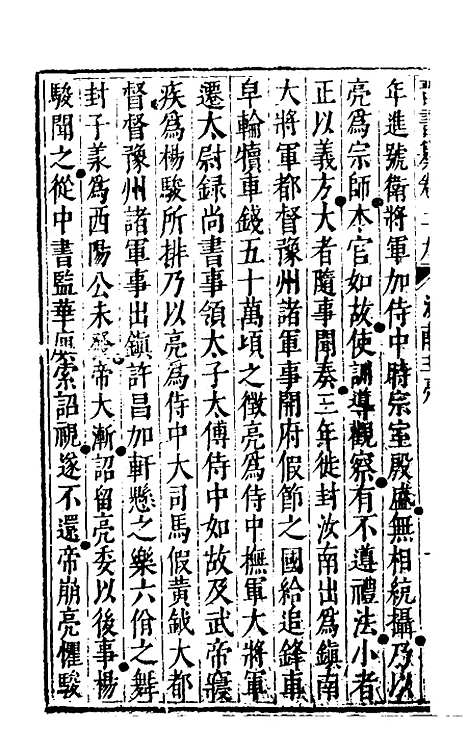 年進號衛將軍加侍中時宗室殿盛無相統攝乃以
亮為宗師本官如故使訓導觀察有不遵禮法小者
正以義方大者隨事聞奏三年徙封汝南出為鎮南
大將軍都督豫州諸軍事開府假節之國給追鋒車
皁輪犢車錢五十萬頃之徵亮為侍中撫軍大將軍
遷太尉錄尚書事領太子太傅侍中如故及武帝寢
疾為楊駿所排乃以亮為侍中大司馬假黃鉞大都
督督豫州諸軍事出鎮許昌加軒懸之樂六佾之舞
封子羕為西陽公未發帝大漸詔留亮委以後事楊
駿聞之從中書監華廙索詔視遂不還帝崩亮懼駿